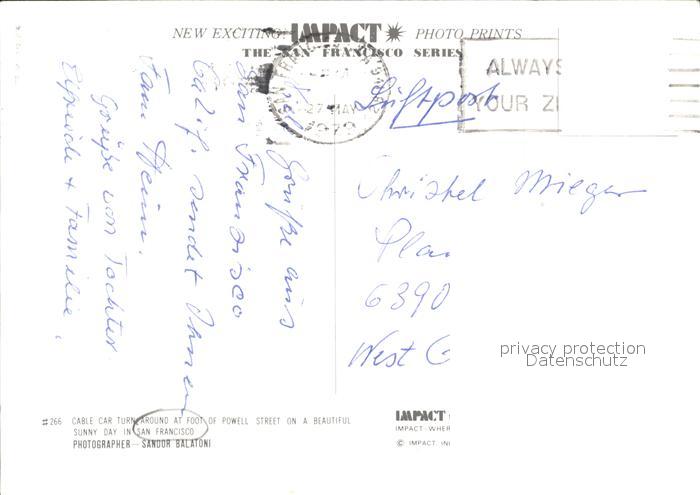 NEW EXCITING IMPACT PHOTO PRINTS
THE SAN FRANCISCO SERIES
27 MAY
1979
ALWAYS
YOUR ZI
Luftpost
Viel Grüße aus
San Francisco
Calif. sendet Ihnen
Fam.
Grüße von Tochter
+ Familie.
Christel Mieger
Pla
6390
West G
privacy protection
Datenschutz
#266 CABLE CAR TURN AROUND AT FOOT OF POWELL STREET ON A BEAUTIFUL
SUNNY DAY IN SAN FRANCISCO
PHOTOGRAPHER — SANDOR BALATONI
IMPACT
IMPACT WHER
© IMPACT. INI